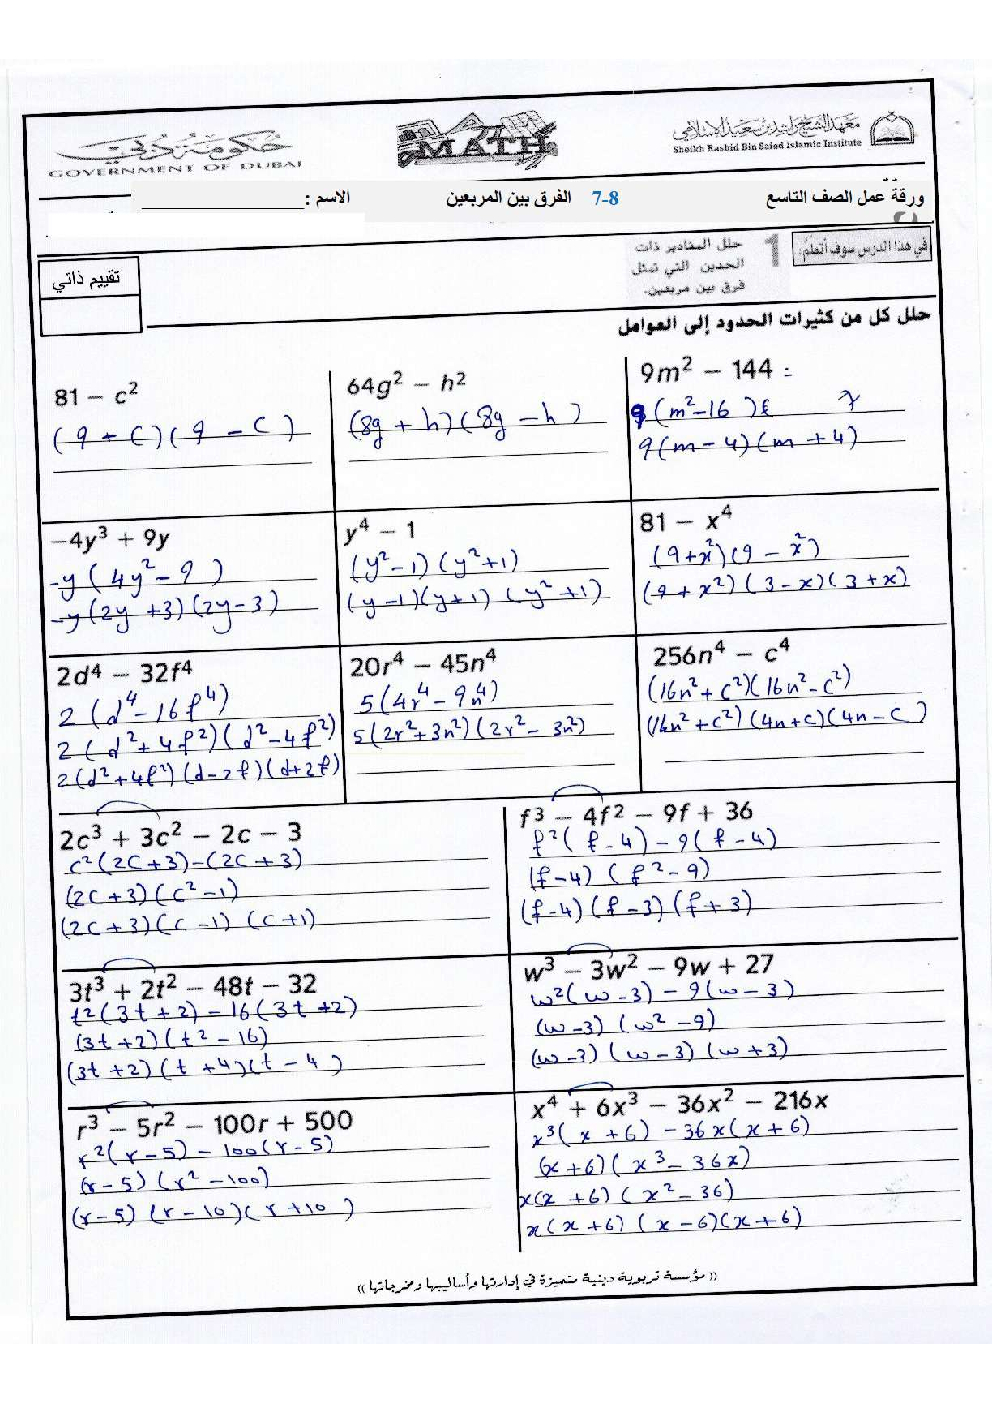 حكومة دبي
GOVERNMENT OF DUBAI
MATH
معهد الشيخ راشد بن سعيد الإسلامي
Sheikh Rashid Bin Saied Islamic Institute
ورقة عمل الصف التاسع 7-8 الفرق بين المربعين الاسم :____________________
في هذا الدرس سوف أتعلم:
1 حلل المقادير ذات
الحدين التي تمثل
فرق بين مربعين.
تقييم ذاتي
حلل كل من كثيرات الحدود إلى العوامل
81 − c²
(9 + c)(9 − c)
64g² − h²
(8g + h)(8g − h)
9m² − 144 =
9(m² − 16)
9(m − 4)(m + 4)
−4y³ + 9y
−y(4y² − 9)
−y(2y + 3)(2y − 3)
y⁴ − 1
(y² − 1)(y² + 1)
(y − 1)(y + 1)(y² + 1)
81 − x⁴
(9 + x²)(9 − x²)
(9 + x²)(3 − x)(3 + x)
2d⁴ − 32f⁴
2(d⁴ − 16f⁴)
2(d² + 4f²)(d² − 4f²)
2(d² + 4f²)(d − 2f)(d + 2f)
20r⁴ − 45n⁴
5(4r⁴ − 9n⁴)
5(2r² + 3n²)(2r² − 3n²)
256n⁴ − c⁴
(16n² + c²)(16n² − c²)
(16n² + c²)(4n + c)(4n − c)
2c³ + 3c² − 2c − 3
c²(2c + 3) − (2c + 3)
(2c + 3)(c² − 1)
(2c + 3)(c − 1)(c + 1)
f³ − 4f² − 9f + 36
f²(f − 4) − 9(f − 4)
(f − 4)(f² − 9)
(f − 4)(f − 3)(f + 3)
3t³ + 2t² − 48t − 32
t²(3t + 2) − 16(3t + 2)
(3t + 2)(t² − 16)
(3t + 2)(t + 4)(t − 4)
w³ − 3w² − 9w + 27
w²(w − 3) − 9(w − 3)
(w − 3)(w² − 9)
(w − 3)(w − 3)(w + 3)
r³ − 5r² − 100r + 500
r²(r − 5) − 100(r − 5)
(r − 5)(r² − 100)
(r − 5)(r − 10)(r + 10)
x⁴ + 6x³ − 36x² − 216x
x³(x + 6) − 36x(x + 6)
(x + 6)(x³ − 36x)
x(x + 6)(x² − 36)
x(x + 6)(x − 6)(x + 6)
(( مؤسسة تربوية دينية متميزة في إدارتها وأساليبها ومخرجاتها ))